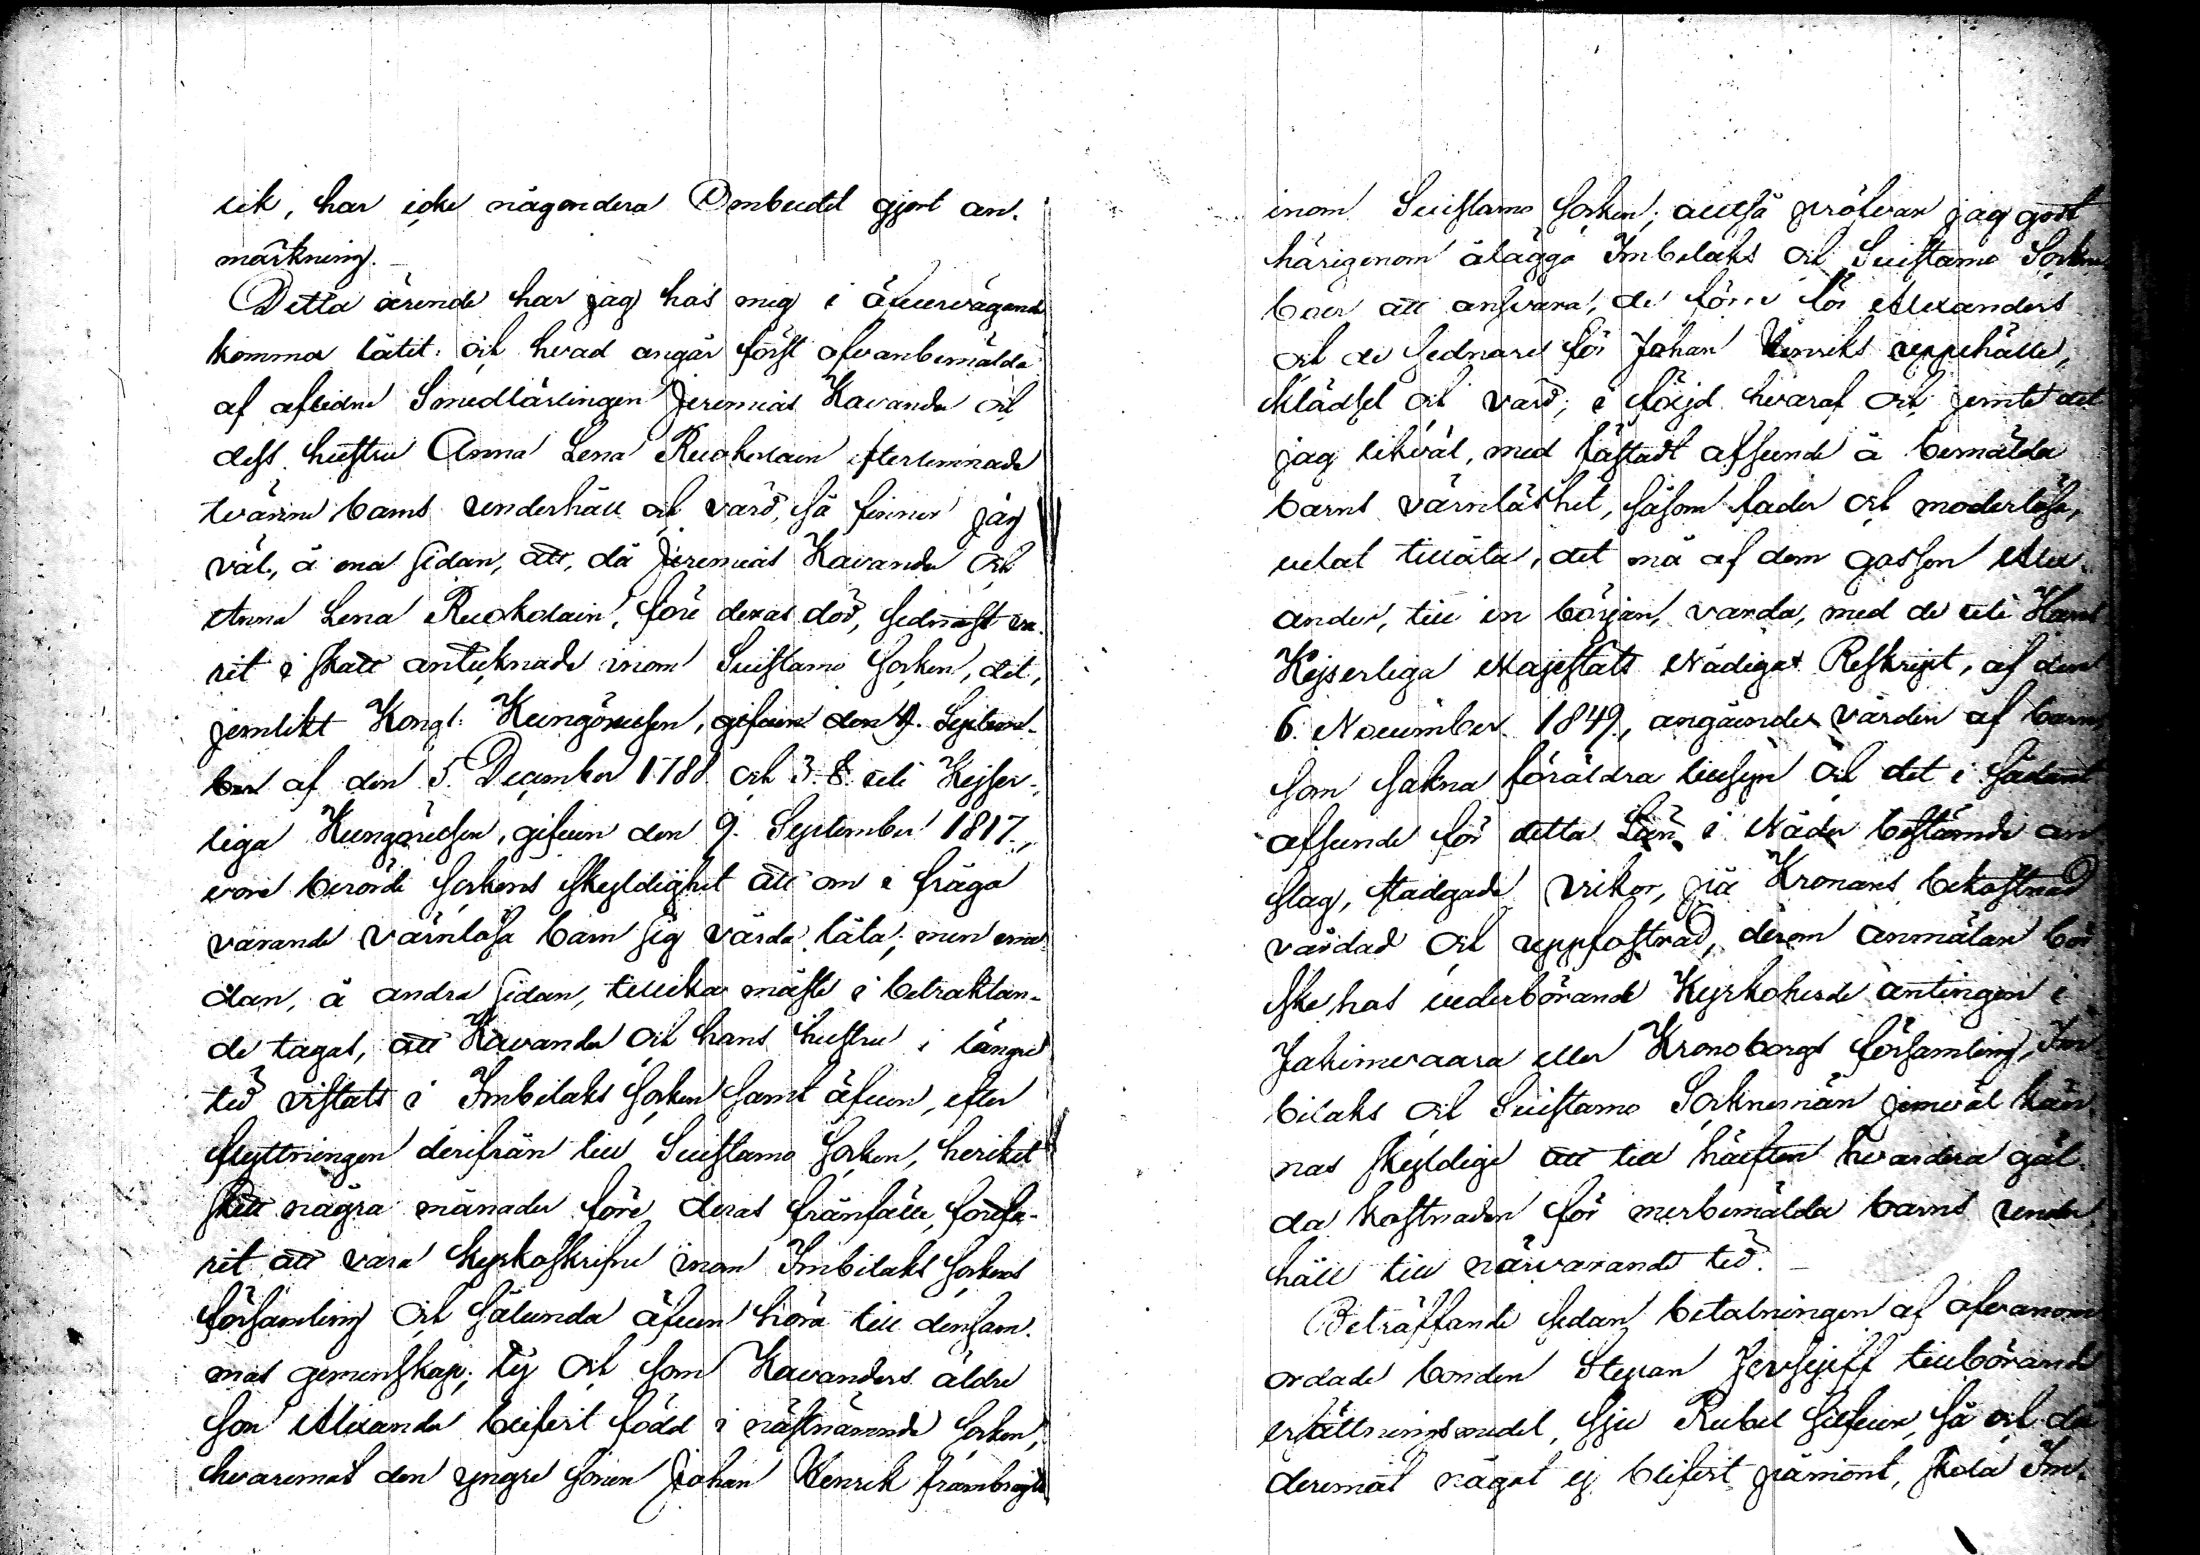 lik, har icke någondera Ombudet gjort an-
märkning.
Detta ärende har jag hos mig i öfvervägande
komma låtit: och hvad angår först ofvanbemälde
af aflidne Smedlärlingen Jeremias Kavander och
dess hustru Anna Lena Ruokolain efterlemnade
tvänne barns underhåll och vård, så finner jag
väl, å ena sidan, att, då Jeremias Kavander och
Anna Lena Ruokolain, före deras död, sednast va-
rit i skatt antecknade inom Suistamo socken, det,
jemlikt Kongl. Kungörelsen, gifven den 4. Septem-
ber af den 5. December 1788 och 3. 8. uti Kejser-
liga Kungörelsen, gifven den 9. September 1817.,
vore berörde sockens skyldighet att om i fråga
varande värnlösa barn sig vårda låta; men eme-
dan, å andra sidan, tillika måste i betraktan-
de tagas, att Kavander och hans hustru i längre
tid vistats i Imbilaks socken samt äfven, efter
flyttningen derifrån till Suistamo socken, hvilket
skett några månader före deras frånfälle, fortfa-
rit att vara kyrkoskrifne inom Imbilaks sockens
församling och sålunda äfven höra till densam-
mas gemenskap; ty och som Kavanders äldre
son Alexander blifvit född i nästnämnde socken,
hvaremot den yngre sonen Johan Henrik frambragts
inom Suistamo socken; alltså pröfvar jag godt
härigenom ålägga Imbilaks och Suistamo Socknes-
boer att ansvara, de förre för Alexanders
och de sednare för Johan Henriks uppehälle,
klädsel och vård; i följd hvaraf och jemte det
jag likväl, med fästadt afseende å bemälda
barns värnlöshet, såsom fader och moderlösa,
velat tillåta, det må af dem gossen Alex-
ander, till en början, varda, med de uti Hans
Kejserliga Majestäts Nådiga Reskript, af den
6. November 1849., angående vården af barn,
som sakna föräldra tillsyn och det i sådant
afseende för detta Län i Nåder bestämda an-
slag, stadgade vilkor, på Kronans bekostnad
vårdad och uppfostrad, derom anmälan bör
ske hos vederbörande Kyrkoherde antingen i
Jakimvaara eller Kronoborgs församling, Im-
bilaks och Suistamo Socknemän jemväl kän-
nas skyldige att till hälften hvardera gäl-
da kostnaden för merbemälda barns under-
håll till närvarande tid.
Beträffande sedan betalningen af ofvanom-
ordade bonden Stepan Jevsejeff tillkommande
ersättningsmedel, sju Rubel silfver, så och då
deremot något ej blifvit påmint, skola Im-